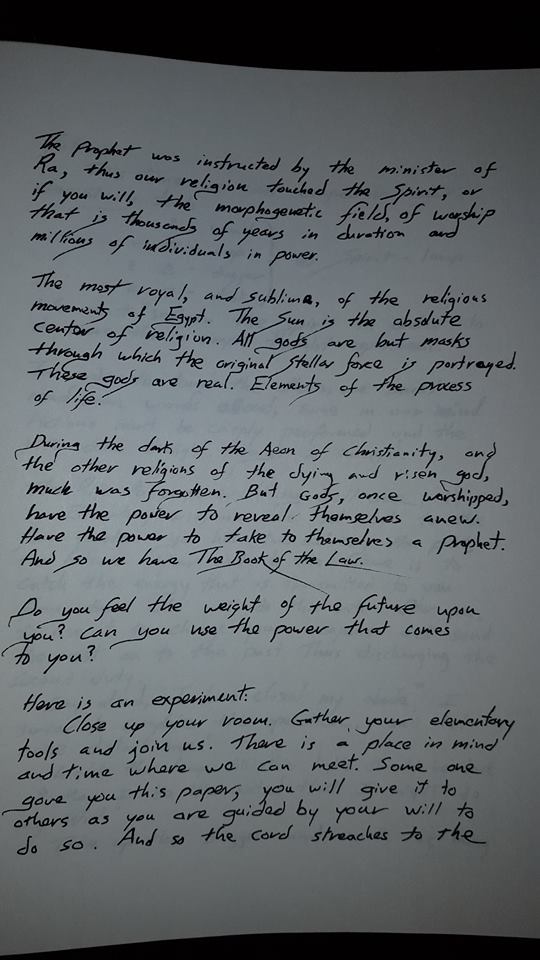 The Prophet was instructed by the minister of
Ra, thus our religion touched the Spirit, or
if you will, the morphogenetic field, of worship
that is thousands of years in duration and
millions of individuals in power.
The most royal, and sublime, of the religious
movements of Egypt. The Sun is the absolute
center of religion. All gods are but masks
through which the original Stellar force is portrayed.
These gods are real. Elements of the process
of life.
During the dark of the Aeon of Christianity, and
the other religions of the dying and risen god,
much was forgotten. But Gods, once worshipped,
have the power to reveal themselves anew.
Have the power to take to themselves a prophet.
And so we have The Book of the Law.
Do you feel the weight of the future upon
you? Can you use the power that comes
to you?
Here is an experiment:
Close up your room. Gather your elementary
tools and join us. There is a place in mind
and time where we can meet. Some one
gave you this paper, you will give it to
others as you are guided by your will to
do so. And so the cord streaches to the